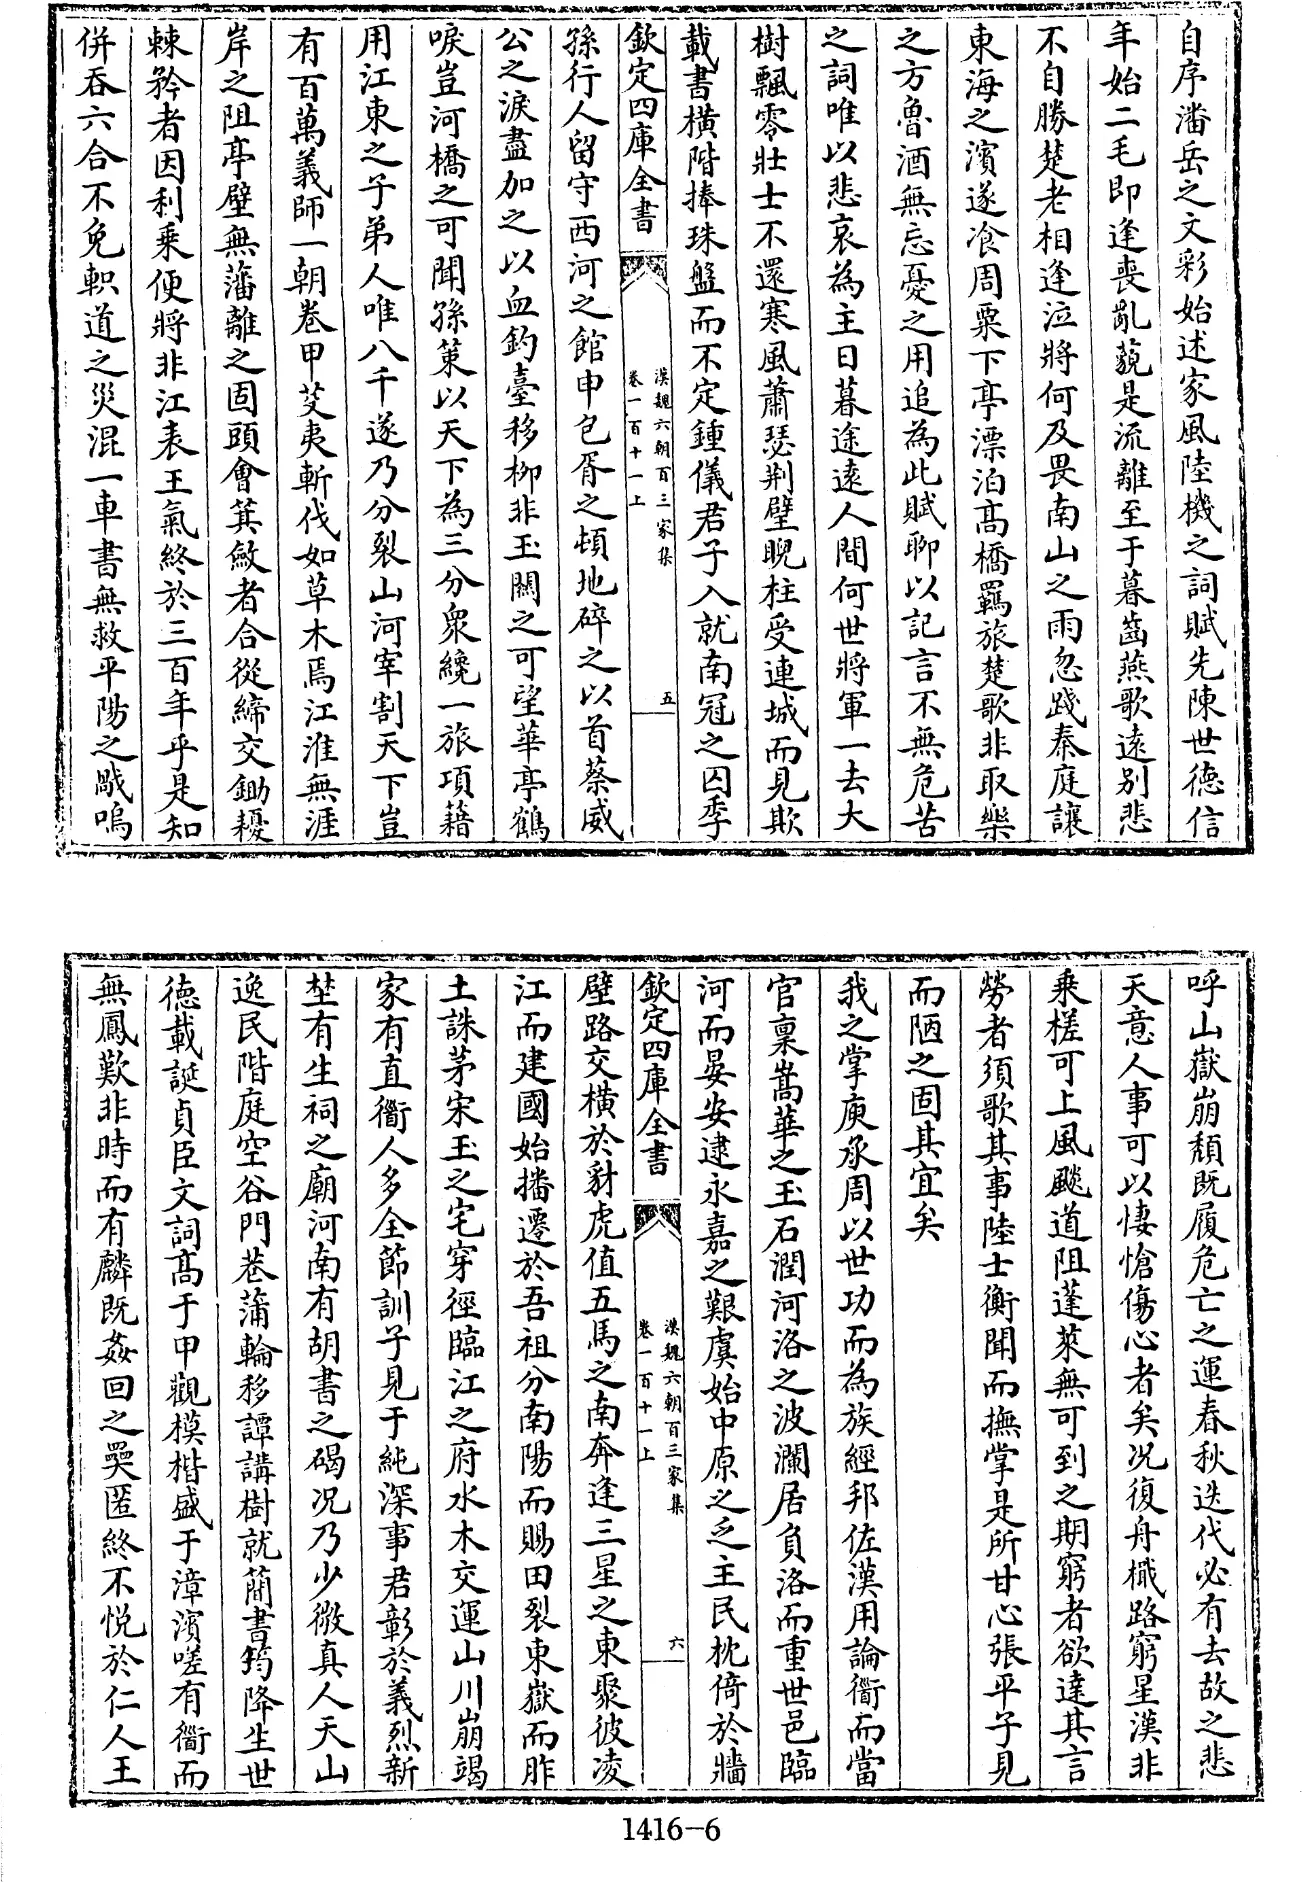 自序潘岳之文彩始述家風陸機之詞賦先陳世德信
年始二毛即逢喪亂藐是流離至于暮齒燕歌遠别悲
不自勝楚老相逢泣將何及畏南山之雨忽踐秦庭讓
東海之濱遂飡周粟下亭漂泊髙橋羈旅楚歌非取樂
之方魯酒無忘憂之用追為此賦聊以記言不無危苦
之詞唯以悲哀為主日暮途逺人間何世將軍一去大
樹飄零壯士不還寒風蕭瑟荆璧睨柱受連城而見欺
載書横階捧珠盤而不定鍾儀君子入就南冠之囚季
欽定四庫全書
漢魏六朝百三家集
卷一百十一上
五
孫行人留守西河之館申包胥之頓地碎之以首蔡威
公之淚盡加之以血釣臺移柳非玉關之可望華亭鶴
唳豈河橋之可聞孫策以天下為三分衆纔一旅項籍
用江東之子弟人唯八千遂乃分裂山河宰割天下豈
有百萬義師一朝卷甲芟夷斬伐如草木焉江淮無涯
岸之阻亭壁無藩離之固頭會箕斂者合從締交鋤耰
棘矜者因利乗便將非江表王氣終於三百年乎是知
併吞六合不免軹道之災混一車書無救平陽之戚嗚
呼山嶽崩頽既履危亡之運春秋迭代必有去故之悲
天意人事可以悽愴傷心者矣况復舟檝路窮星漢非
乗槎可上風飈道阻蓬萊無可到之期窮者欲達其言
勞者須歌其事陸士衡聞而撫掌是所甘心張平子見
而陋之固其宜矣
我之掌庾承周以世功而為族經邦佐漢用論衟而當
官稟嵩華之玉石潤河洛之波瀾居負洛而重世邑臨
河而晏安逮永嘉之艱虞始中原之乏主民枕倚於牆
欽定四庫全書
漢魏六朝百三家集
卷一百十一上
六
壁路交横於豺虎值五馬之南奔逢三星之東聚彼凌
江而建國始播遷於吾祖分南陽而賜田裂東嶽而胙
土誅茅宋玉之宅穿徑臨江之府水木交運山川崩竭
家有直衟人多全節訓子見于純深事君彰於義烈新
埜有生祠之廟河南有胡書之碣况乃少微真人天山
逸民階庭空谷門巷蒲輪移譚講樹就蕳書筠降生世
德載誕貞臣文詞髙于甲觀模楷盛于漳濱嗟有衟而
無鳳歎非時而有麟既姦回之奰匿終不悦於仁人王
1416-6